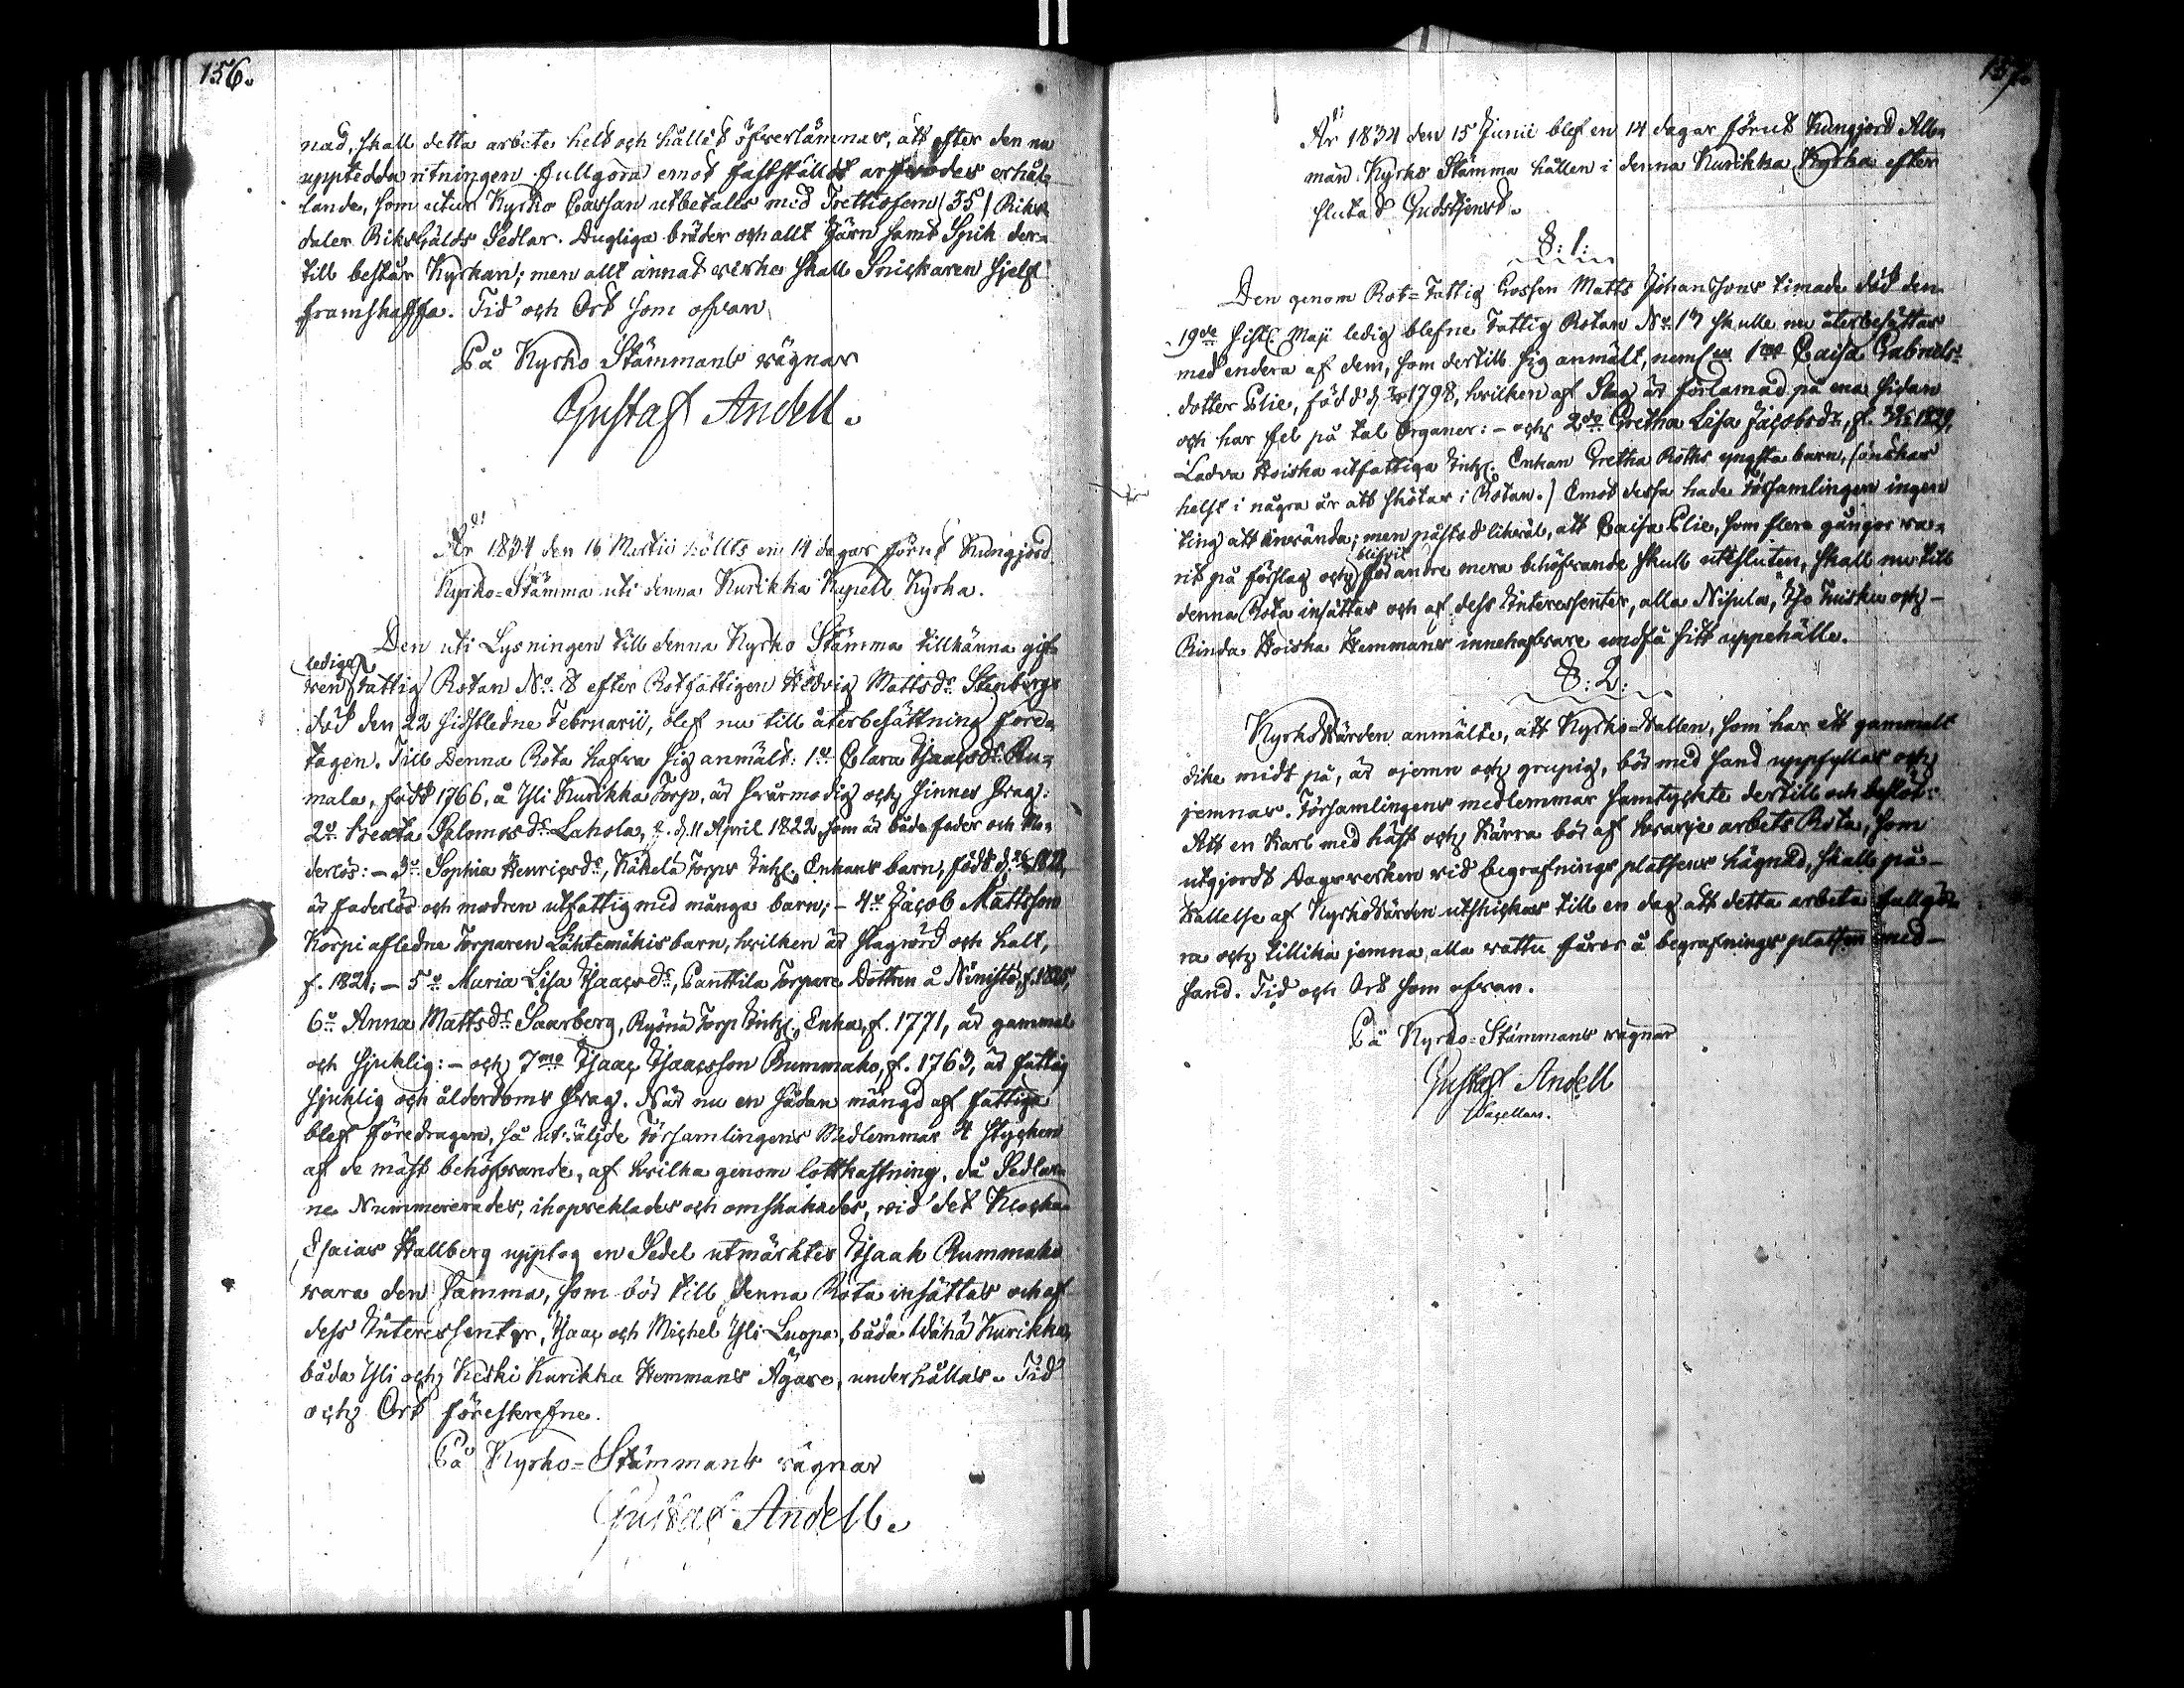 156.
nad, skall detta arbete helt och hållet öfverlämnas, att efter den nu
upptedda ritningen fullgöra emot fastställdt arfvodes erhål-
lande, som utur Kyrko Cassan utbetalts med Trettiofem (35) Riks-
daler Riksgälds Sedlar. Dugliga bräder och allt Järn samt Spik der-
till består Kyrkan; men allt annat virke skall Snickaren sjelf
framskaffa. Tid och Ort som ofvan
På Kyrko Stämmans vägnar
Gustaf Andell.
År 1834 den 16 Martii hölts en 14 dagar förut Kungjord
Kyrko-Stämma uti denna Kurikka Kapell Kyrka.
Den uti Lysningen till denna Kyrko Stämma tillkänna gif-
ledige
ven Fattig Rotan No. 8 efter Rotfattigen Hedvig Mattsdr Stenbergs
död den 22 sidstledne Februarii, blef nu till återbesättning före-
tagen. Till Denna Rota hafva sig anmält: 1o Clara Isaacsdr Ru-
mala, född 1766, å Yli Kurikka Torp, är svårmodig och sinnes svag:
2o Beata Salomonsdr Lahola, f. d. 11 April 1822, som är både fader och Mo-
derlös: - 3o Sophia Henricsdr, Käkelä Torps Inhs. Enkans barn, född d.
är faderlös och modren utfattig med många barn; - 4o Jacob Mattsson
Korpi afledne Torparen Lähtemäkis barn, hvilken är slagrörd och halt,
f. 1821; - 5o Maria Lisa Isaacsdr, Panttila Torpare Dottren å Ninistö, f.
6o Anna Mattsdr Saarberg, Ryönä Torp Inhs. Enka, f. 1771, är gammal
och sjuklig: - och 7mo Isaac Isaacsson Rummako, f. 1763, är fattig
sjuklig och ålderdoms svag. När nu en sådan mängd af fattiga
blef föredragen, så utväljde Församlingens Medlemmar 4 stycken
af de mäst behöfvande, af hvilka genom lottkastning, då Sedlar-
ne Nummererades, ihopveklades och omskakades, vid det Klockar
Esaias Hallberg upptog en Sedel utmärktes Isaak Rummako
vara den samma, som bör till denna Rota insättas och af
dess Interessenter, Isaac och Michel Yli Luopa, båda Wähä Kurikka,
båda Yli och Keski Kurikka Hemmans Ägare, underhållas. Tid
och Ort föreskrefne.
På Kyrko-Stämmans vägnar
Gustaf Andell.
157.
År 1834 den 15 Junii blef en 14 dagar förut Kungjord All-
män Kyrko Stämma hållen i denna Kurikka Kyrka efter
slutad Gudstjenst.
§: 1:
Den genom Rot-Fattig Gossen Matts Johanssons timade död den
19de sistl. Maji ledig blefne Fattig Rotan No. 13 skulle nu återbesättas
med endera af dem, som dertill sig anmält, neml. 1mo Caisa Gabriels-
dotter Elie, född d. 1798, hvilken af Slag är förlamad på ena sidan
och har fel på tal Organer: - och 2do Gretha Lisa Jacobsdr, f.
Ladva Koiska utfattiga Inhs. Enkan Gretha Röths yngsta barn, (önskas
helst i några år att skötas i Rotan.) Emot dessa hade Församlingen ingen
ting att invända; men påstod likväl, att Caisa Elie, som flera gångor va-
blifvit
rit på förslag och för andre mera behöfvande skull utesluten, skall nu till
denna Rota insättas och af dess Interessenter, alla Nisula, Iso Tuisku och -
Rinda Koiska Hemmans innehafvare undfå sitt uppehälle.
§: 2:
KyrkoVärden anmälte, att Kyrko-Vallen, som har ett gammalt
dike midt på, är ojemn och gropig, bör med sand uppfyllas och
jemnas. Församlingens medlemmar samtyckte dertill och beslöt:
Att en Karl med häst och kärra bör af hvarje arbets Rota, som
utgjordt Dagsverken vid begrafnings platsens hägnad, skall på -
kallelse af KyrkoVärden utskickas till en dag att detta arbete fullgö-
ra och tillika jemna alla vattu fåror å begrafnings platsen med -
sand. Tid och Ort som ofvan.
På Kyrko-Stämmans vägnar
Gustaf Andell
Capellan.